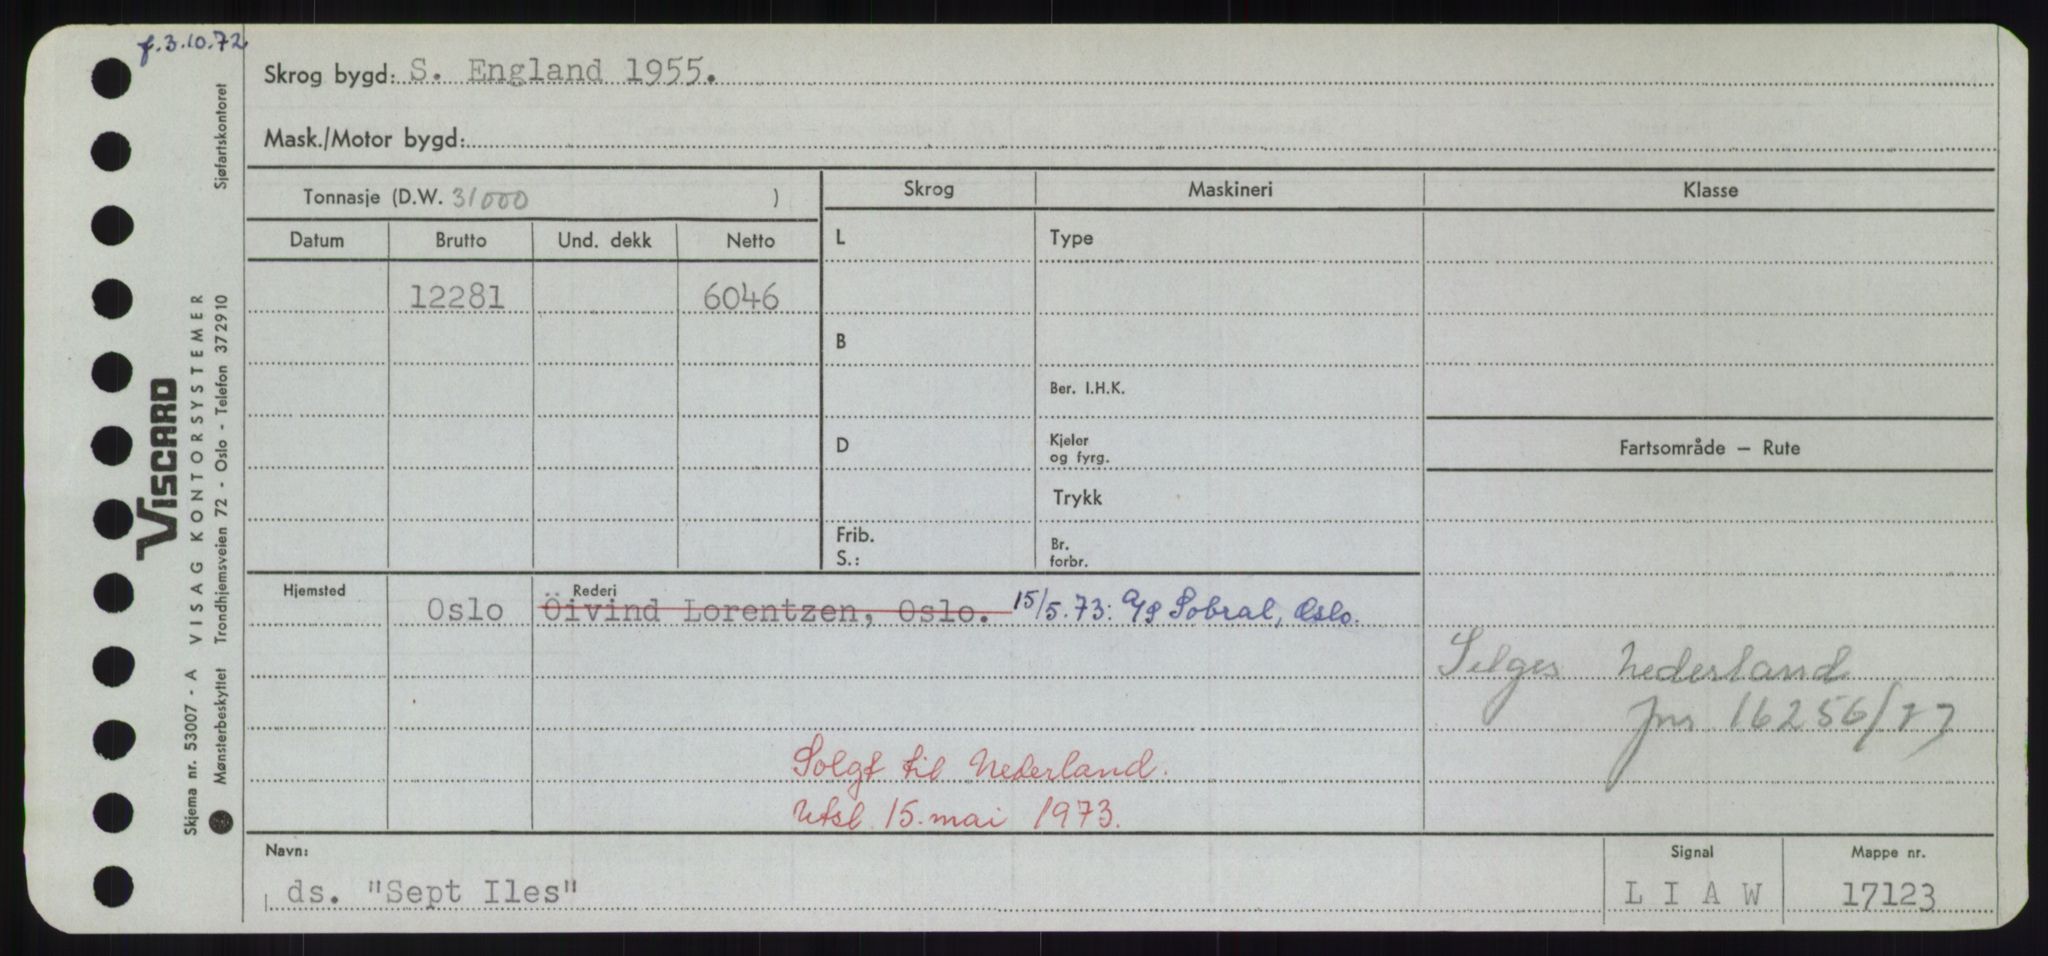 f. 3.10.72
Skrog bygd: S. England 1955.
Mask./Motor bygd:
Tonnasje (D.W. 31000 )
Skrog Maskineri Klasse
Datum Brutto Und. dekk Netto
L Type
12281 6046
B
Ber. I.H.K.
D Kjeler og fyrg.
Fartsområde – Rute
Trykk
Frib.
S.:
Br. forbr.
Hjemsted Rederi
Oslo Öivind Lorentzen, Oslo. 15/5.73: A/S Sobral, Oslo.
Selges Nederland
jnr 16256/
Solgt til Nederland.
Utsl. 15. mai 1973.
Navn: Signal Mappe nr.
ds. "Sept Iles" L I A W 17123
VISCARD
VISAG KONTORSYSTEMER
Skjema nr. 53007 - A
Mønsterbeskyttet Trondhjemsveien 72 - Oslo - Telefon 37 29 10 Sjøfartskontoret